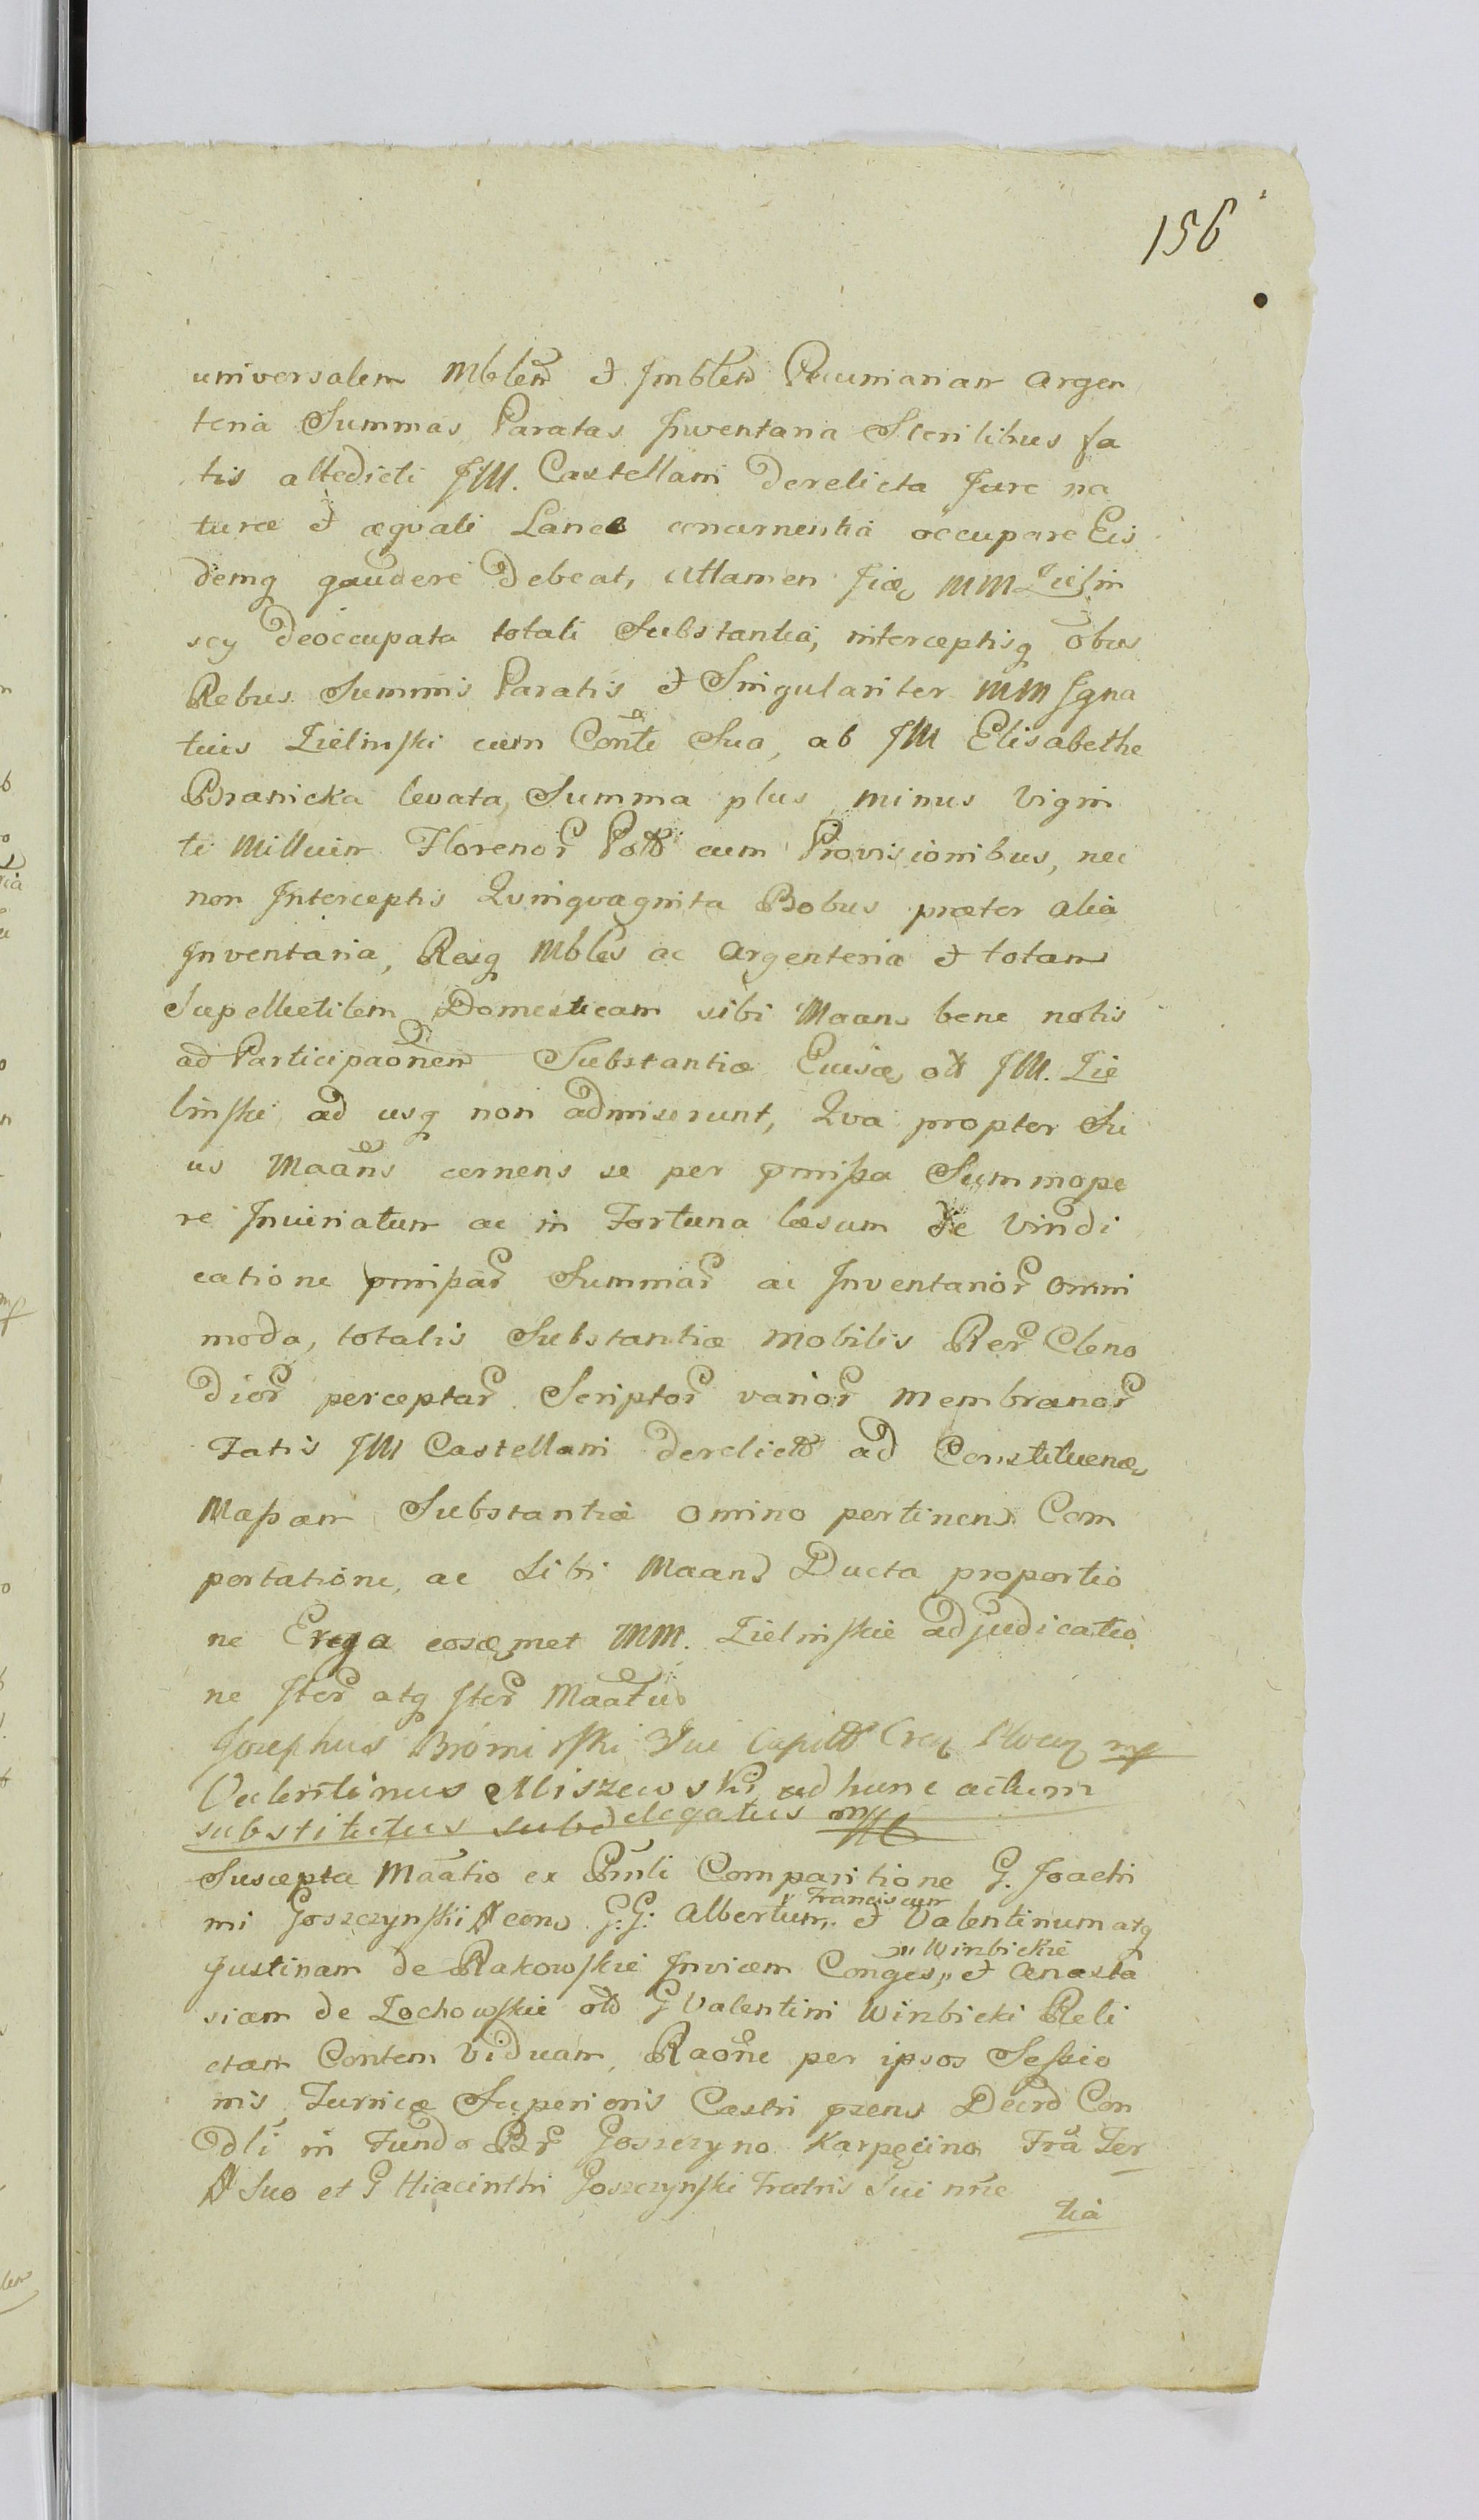 156
universalem Mblem et Jmblem Pecuniariam argen
teria Summas Paratas Jnventaria Sterilibus fa
tis altedicti JM. Castellani derelicta Jure na
turæ et æqvali Lance concernentia occupare Eis
demq gaudere debeat, attamen MM Zielin
scy deoccupata totali Substantia, interceptisq obus
Rebus Summis Paratis et Singulariter MM Jgna
tius Zielinski cum Conte Sua, ab JM Elisabethe
Branicka levata Summa plus minus Vigin
ti Millium Florenor Polo cum Provisionibus, nec
non Jnterceptis Qvinqvaginta Bobus præter alia
Jnventaria, Resq Mbles ac argenteria et totam
Supellectilem Domesticam sibi Maans bene notis
ad Participaonem Substantiæ Eiusd old JM. Zie
linski ad usq non admiserunt, Qva propter Su
us Maans cernens se per pmissa Summope
re Jniuriatum ac in Fortuna læsum de Vindi
catione pmissar Summar ac Jnventarior omni
moda, totalis Substantiæ Mobilis Rer Cleno
dior perceptar Scriptor varior Membranar
Fatis JM Castellani derelict ad Constituend
Massam Substantiæ omnino pertinen Com
portatione, ac Sibi Maans Ducta proportio
ne Erga eosdemmet MM. Zielinskie adjudicatio
ne Jter atq Jter Maatus
Josephus Bromirski Vice Capit Cap Ploc mp
Valentinus Miszewski ad hunc actum
substitutus subdelegatus mp
Suscepta Maatio ex Pnnli Comparitione G. Joachi
mi Goszczynskii A cons G.G. Albertum, Franciscum et Valentinum atq
Justinam de Rakowskie Jnvicem Conges, Winbickie et Anasta
siam de Zochowskie old G Valentini Winbicki Reli
ctam Contem Viduam, Raone per ipsos Sessio
nis Turricæ Superioris Castri pzens Decrd Con
dli in Fundo Br Goszczyno Karpęcino Fra Fer
A Suo et G Hiacinthi Goszczynski Fratris Sui nne
tia